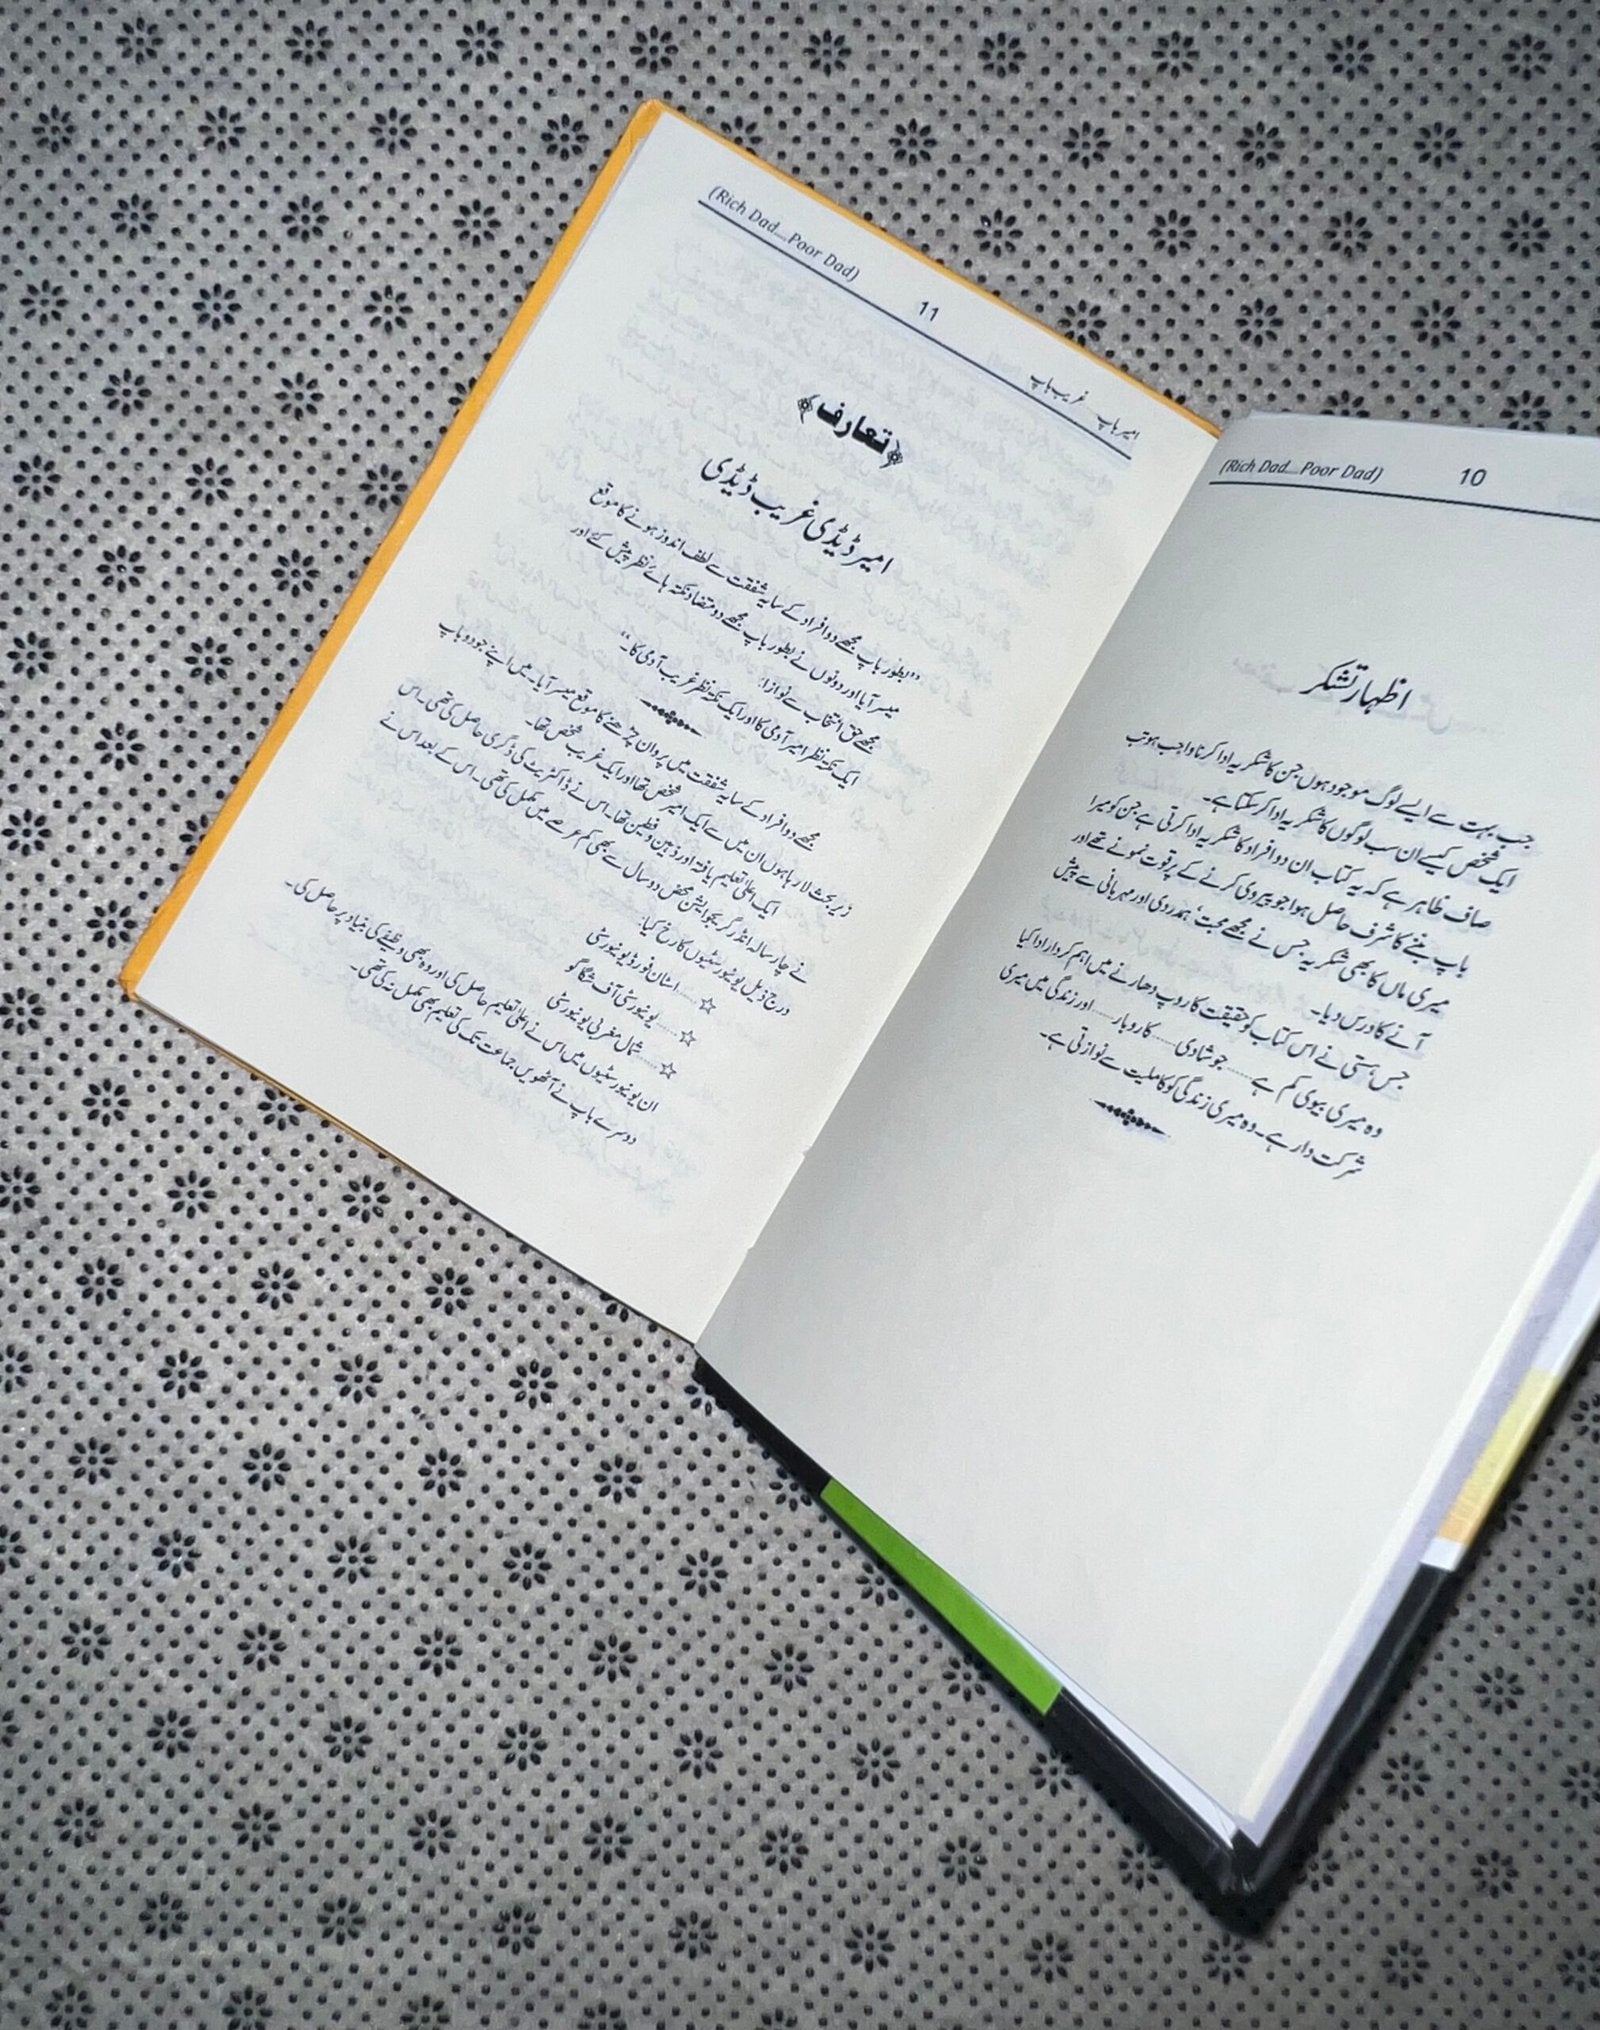 (Rich Dad....Poor Dad) 10
اظہارِ تشکر
جب بہت سے ایسے لوگ موجود ہوں جن کا شکریہ ادا کرنا واجب ہو تب
ایک شخص کیسے ان سب لوگوں کا شکریہ ادا کر سکتا ہے۔
صاف ظاہر ہے کہ یہ کتاب ان دو افراد کا شکریہ ادا کرتی ہے جن کو میرا
باپ بننے کا شرف حاصل ہوا جو پیروی کرنے کے پرقوت نمونے تھے اور
میری ماں کا بھی شکریہ جس نے مجھے محبت، ہمدردی اور مہربانی سے پیش
آنے کا درس دیا۔
جس ہستی نے اس کتاب کو حقیقت کا روپ دھارنے میں اہم کردار ادا کیا
وہ میری بیوی کم ہے ...... جو شادی ...... کاروبار ...... اور زندگی میں میری
شرکت دار ہے۔ وہ میری زندگی کو کاملیت سے نوازتی ہے۔
امیر باپ غریب باپ 11 (Rich Dad....Poor Dad)
﴿تعارف﴾
امیر ڈیڈی غریب ڈیڈی
”بطور باپ مجھے دو افراد کے سایہ شفقت سے لطف اندوز ہونے کا موقع
میسر آیا اور دونوں نے بطور باپ مجھے دو متضاد نکتہ ہائے نظر پیش کئے اور
مجھے حق انتخاب سے نوازا:
ایک نکتہ نظر امیر آدمی کا اور ایک نکتہ نظر غریب آدمی کا۔“
مجھے دو افراد کے سایہ شفقت میں پروان چڑھنے کا موقع میسر آیا۔ میں اپنے جو دو باپ
زیر بحث لا رہا ہوں ان میں سے ایک امیر شخص تھا اور ایک غریب شخص تھا۔
ایک اعلیٰ تعلیم یافتہ اور ذہین و فطین تھا۔ اس نے ڈاکٹریٹ کی ڈگری حاصل کی تھی۔ اس
نے چار سالہ انڈر گریجوایشن محض دو سال سے بھی کم عرصے میں مکمل کی تھی۔ اس کے بعد اس نے
درج ذیل یونیورسٹیوں کا رخ کیا:
☆...... اسٹان فورڈ یونیورسٹی
☆...... یونیورسٹی آف شکاگو
☆...... شمال مغربی یونیورسٹی
ان یونیورسٹیوں میں اس نے اعلیٰ تعلیم حاصل کی اور وہ بھی وظیفے کی بنیاد پر حاصل کی۔
دوسرے باپ نے آٹھویں جماعت تک کی تعلیم بھی مکمل نہ کی تھی۔